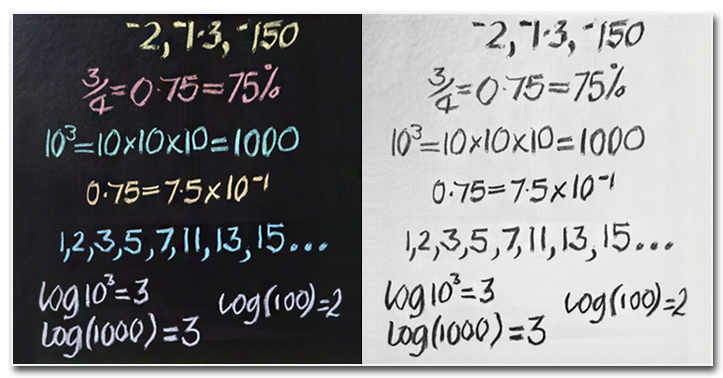 ⁻2, ⁻1·3, ⁻150
3/4=0·75=75%
10³=10×10×10=1000
0·75=7·5×10⁻¹
1,2,3,5,7,11,13,15...
log10³=3
log(100)=2
log(1000)=3
⁻2, ⁻1·3, ⁻150
3/4=0·75=75%
10³=10×10×10=1000
0·75=7·5×10⁻¹
1,2,3,5,7,11,13,15...
log10³=3
log(100)=2
log(1000)=3